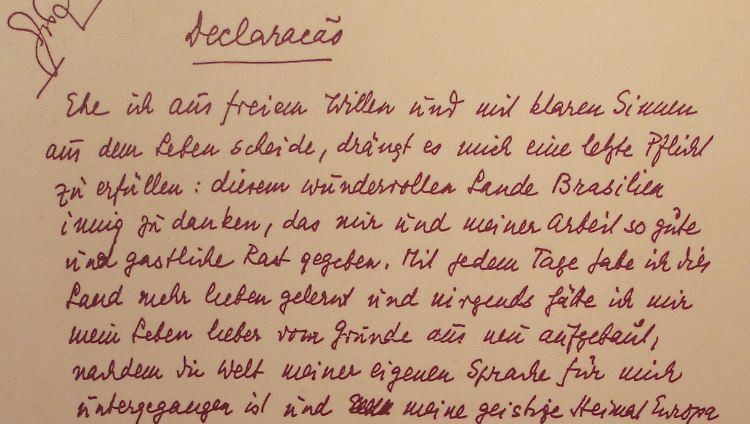 Declaracão
Ehe ich aus freiem Willen und mit klaren Sinnen
aus dem Leben scheide, drängt es mich eine letzte Pflicht
zu erfüllen: diesem wundervollen Lande Brasilien
innig zu danken, das mir und meiner Arbeit so gute
und gastliche Rast gegeben. Mit jedem Tage habe ich dies
Land mehr lieben gelernt und nirgends hätte ich mir
mein Leben lieber vom Grunde aus neu aufgebaut,
nachdem die Welt meiner eigenen Sprache für mich
untergegangen ist und meine geistige Heimat Europa